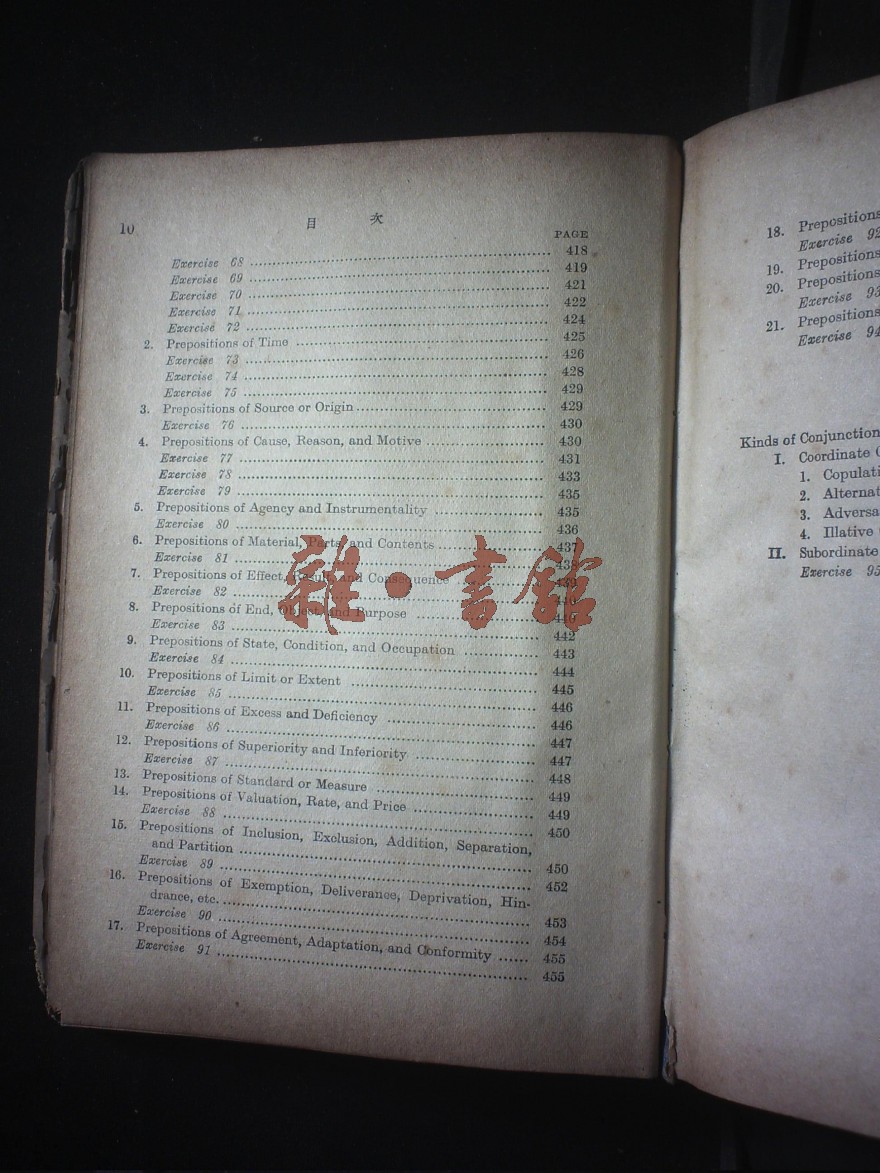 10 目 次
PAGE
Exercise 68 ........ 418
Exercise 69 ........ 419
Exercise 70 ........ 421
Exercise 71 ........ 422
Exercise 72 ........ 424
2. Prepositions of Time ........ 425
Exercise 73 ........ 426
Exercise 74 ........ 428
Exercise 75 ........ 429
3. Prepositions of Source or Origin ........ 429
Exercise 76 ........ 430
4. Prepositions of Cause, Reason, and Motive ........ 430
Exercise 77 ........ 431
Exercise 78 ........ 433
Exercise 79 ........ 435
5. Prepositions of Agency and Instrumentality ........ 435
Exercise 80 ........ 436
6. Prepositions of Material, Parts, and Contents ........ 437
Exercise 81 ........ 438
7. Prepositions of Effect, Result, and Consequence ........ 439
Exercise 82 ........ 440
8. Prepositions of End, Object, and Purpose ........ 440
Exercise 83 ........ 442
9. Prepositions of State, Condition, and Occupation ........ 443
Exercise 84 ........ 444
10. Prepositions of Limit or Extent ........ 445
Exercise 85 ........ 446
11. Prepositions of Excess and Deficiency ........ 446
Exercise 86 ........ 447
12. Prepositions of Superiority and Inferiority ........ 447
Exercise 87 ........ 448
13. Prepositions of Standard or Measure ........ 449
14. Prepositions of Valuation, Rate, and Price ........ 449
Exercise 88 ........ 450
15. Prepositions of Inclusion, Exclusion, Addition, Separation,
and Partition ........ 450
Exercise 89 ........ 452
16. Prepositions of Exemption, Deliverance, Deprivation, Hin-
drance, etc. ........ 453
Exercise 90 ........ 454
17. Prepositions of Agreement, Adaptation, and Conformity ...... 455
Exercise 91 ........ 455
雜·書館
18. Prepositions
Exercise 92
19. Prepositions
20. Prepositions
Exercise 93
21. Prepositions
Exercise 94
Kinds of Conjunction
I. Coordinate
1. Copulati
2. Alternat
3. Adversa
4. Illative
II. Subordinate
Exercise 95